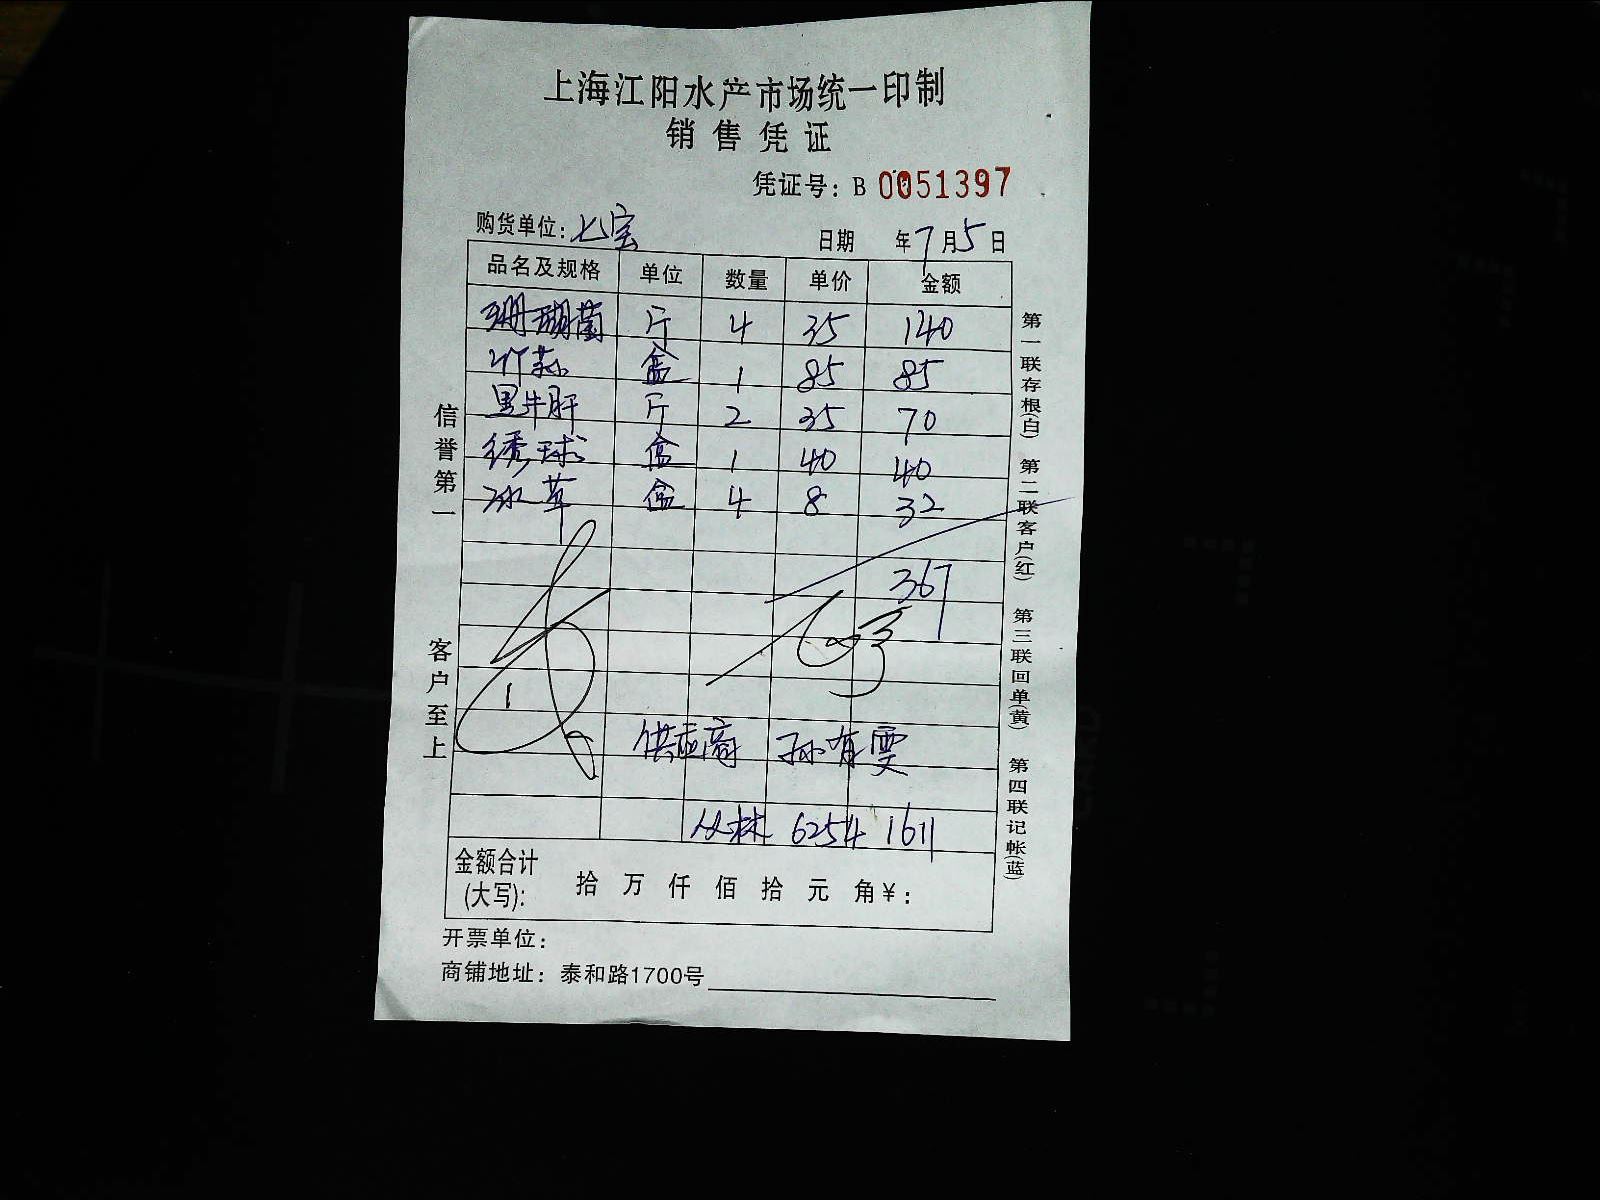 上海江阳水产市场统一印制
销售凭证
凭证号：B 0051397
购货单位：七宝 日期 年7月5日
品名及规格 单位 数量 单价 金额
珊瑚菌 斤 4 35 140
竹荪 盒 1 85 85
黑牛肝 斤 2 35 70
绣球 盒 1 40 40
冰草 盒 4 8 32
367
供应商 孙有雯
丛林 6254 1611
金额合计(大写)： 拾 万 仟 佰 拾 元 角 ¥：
开票单位：
商铺地址：泰和路1700号
信誉第一 客户至上
第一联存根(白) 第二联客户(红) 第三联回单(黄) 第四联记帐(蓝)